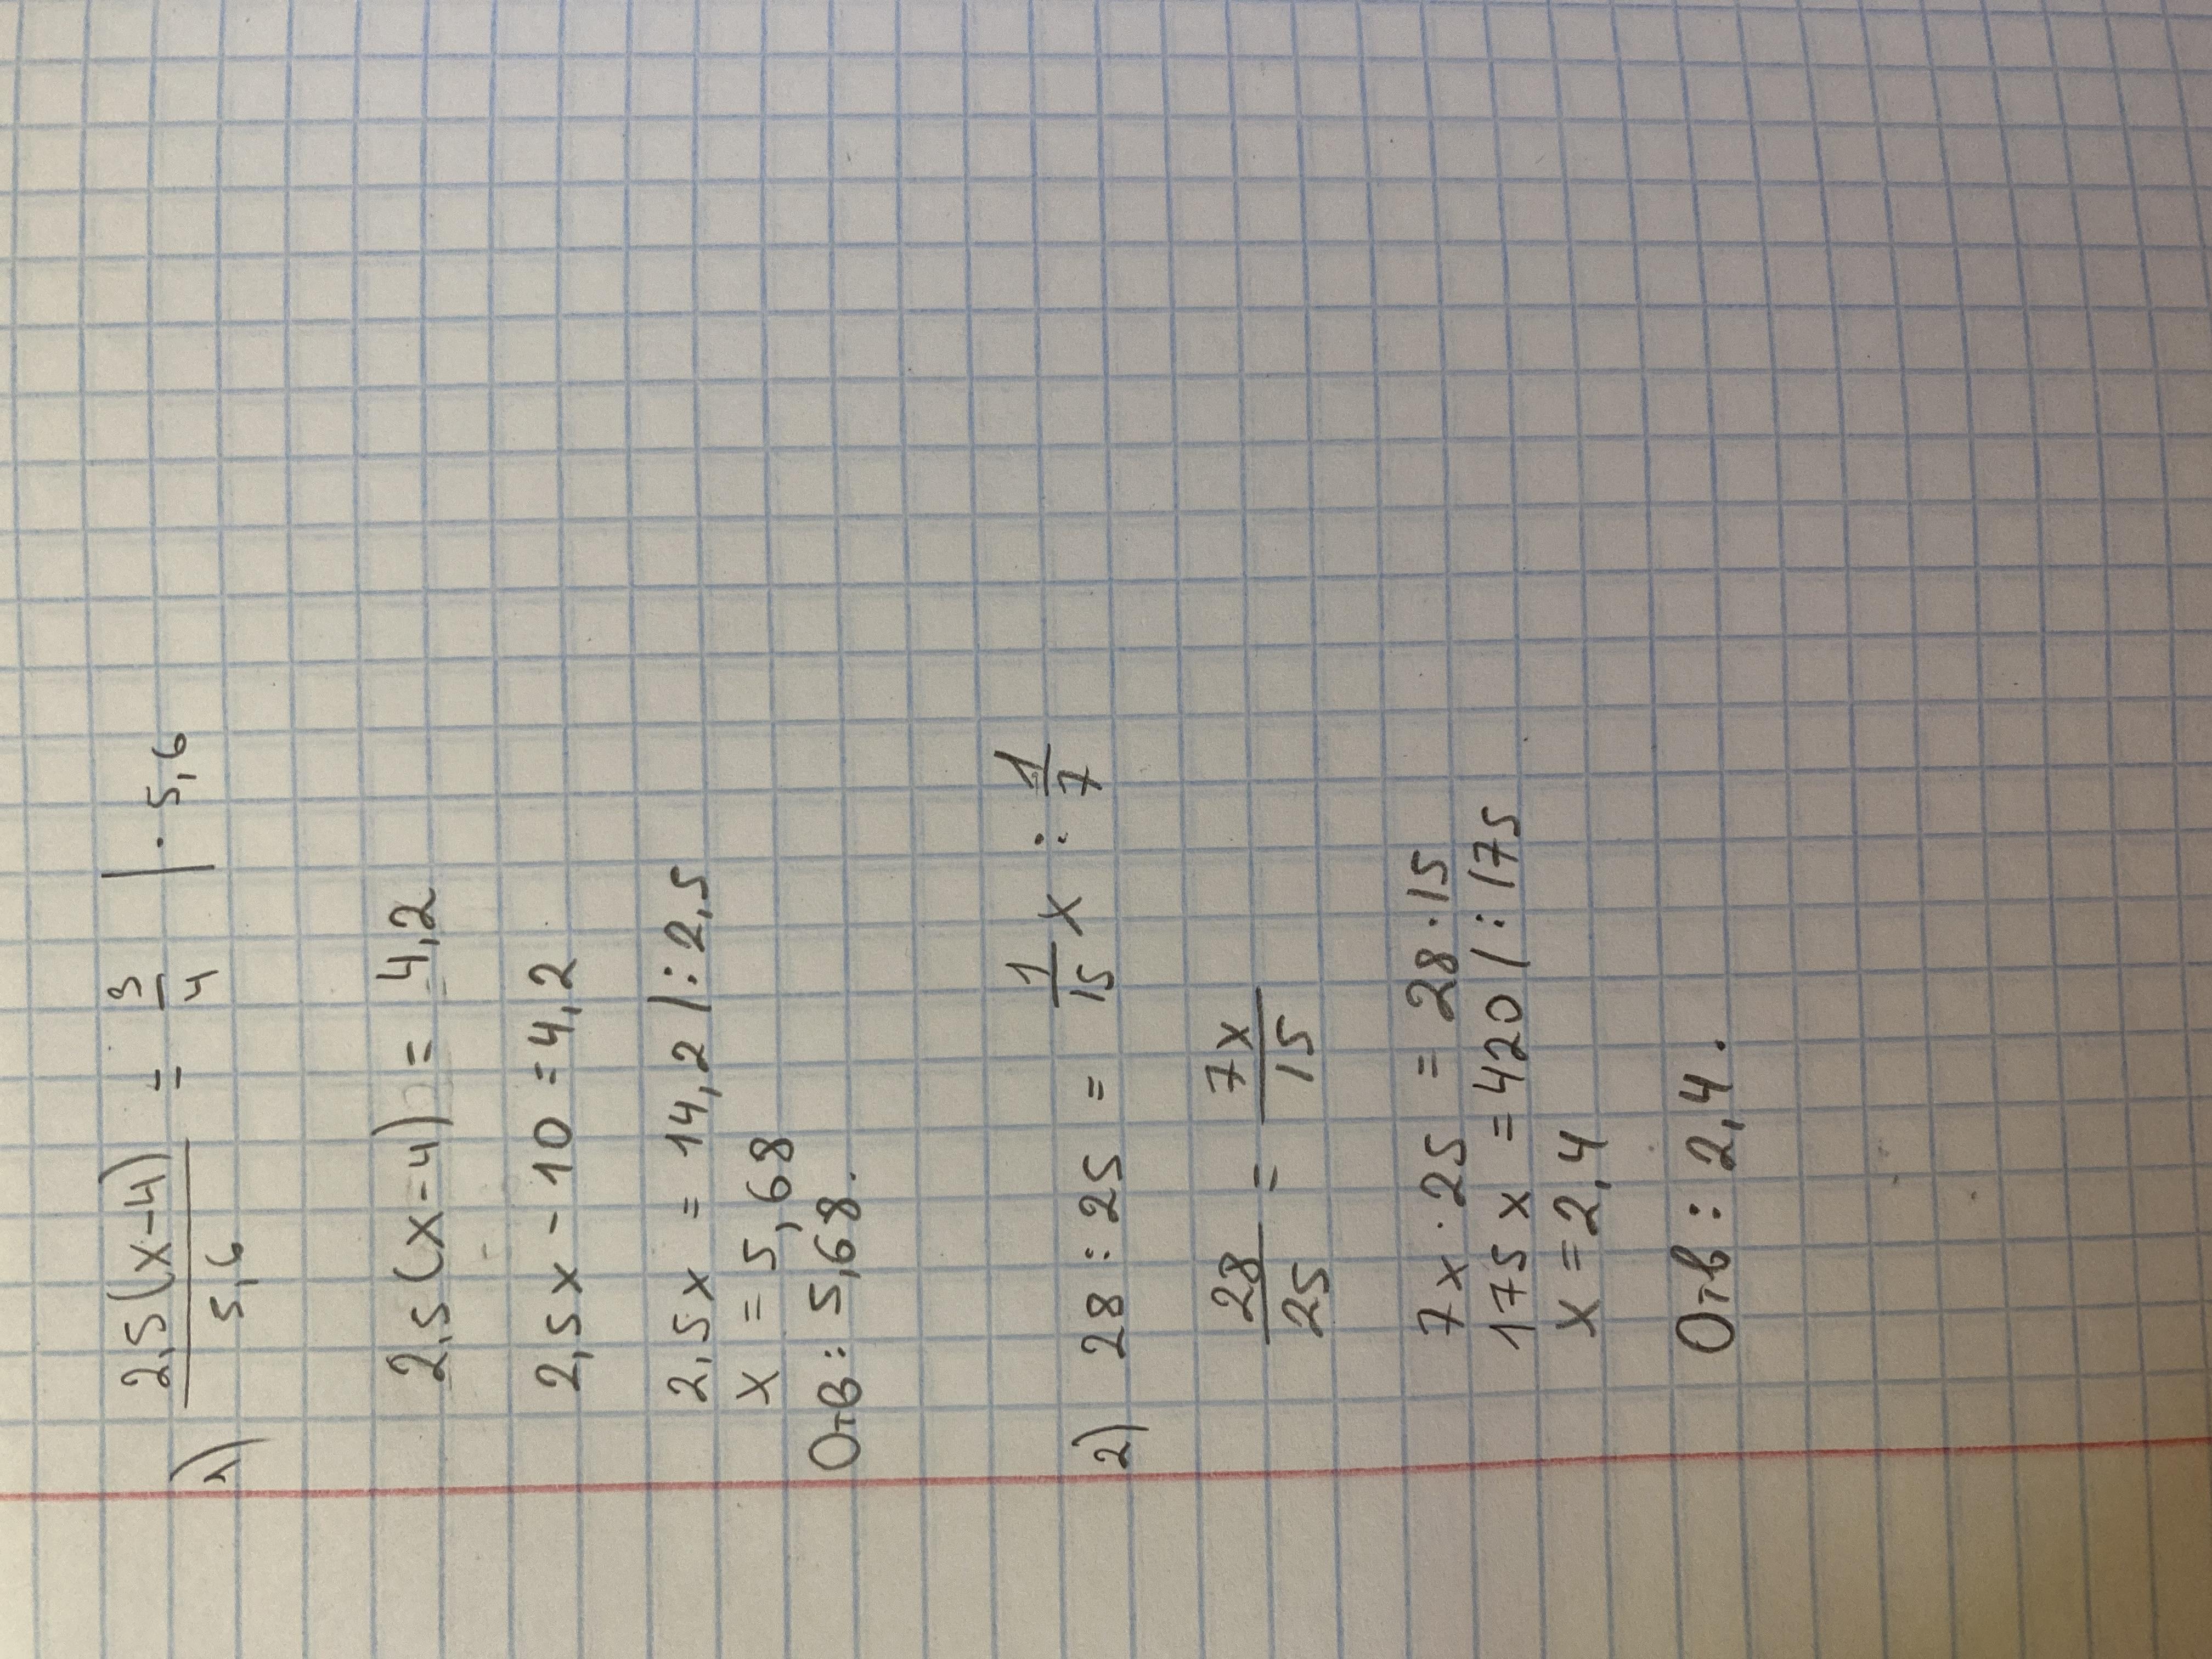 1) 2,5(x-4)/5,6 = 3/4 | · 5,6
2,5(x-4) = 4,2
2,5x - 10 = 4,2
2,5x = 14,2 |: 2,5
x = 5,68
Отв: 5,68.
2) 28 : 25 = 1/15 x : 1/7
28/25 = 7x/15
7x · 25 = 28 · 15
175x = 420 |: 175
x = 2,4
Отв: 2,4.